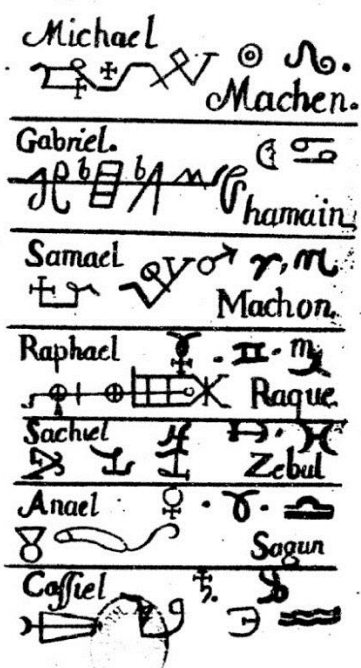 Michael
Machen.
Gabriel.
Chamain
Samael
Machon.
Raphael
Raque
Sachiel
Zebul
Anael
Sagun
Cassiel